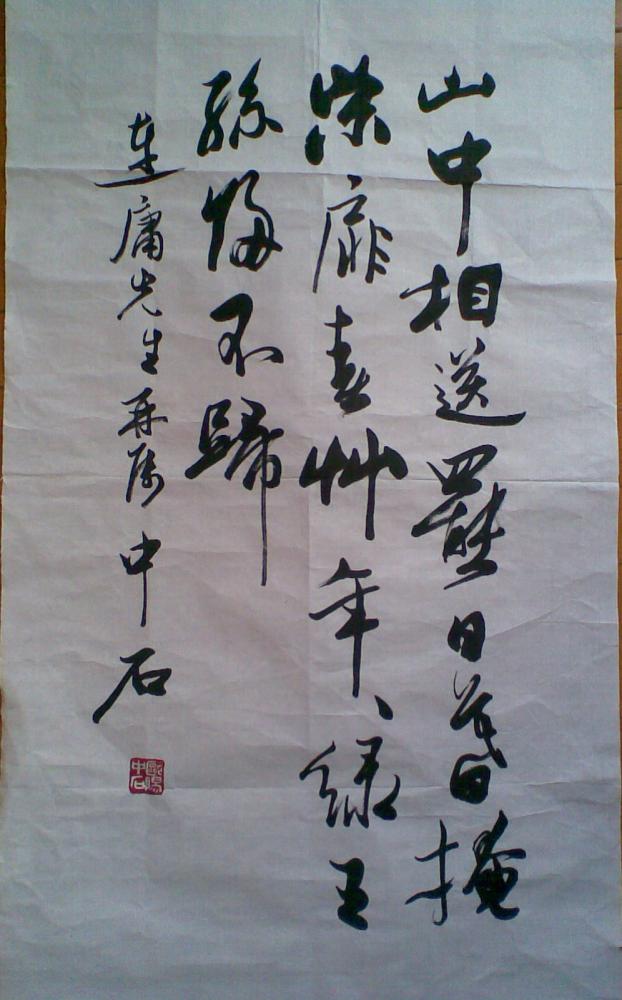 山中相送罷日暮掩
柴扉春艸年、綠王
孫歸不歸
連庸先生再属 中石
歐陽中石